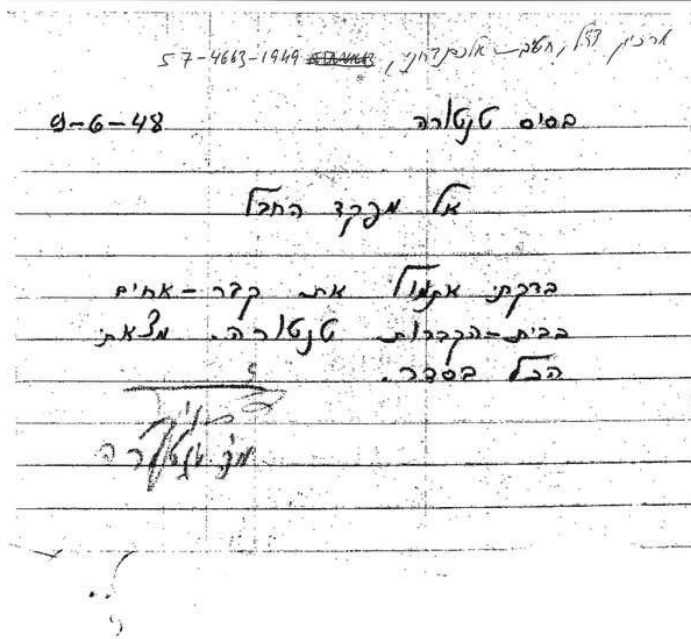 ארכיון צה"ל, חטיבת אלכסנדרוני, 57-4663-1949
בסיס טנטורה 9-6-48
אל מפקד החבל
בדקתי אתמול את קבר-אחים
בבית-הקברות טנטורה. מצאתי
הכל בסדר.